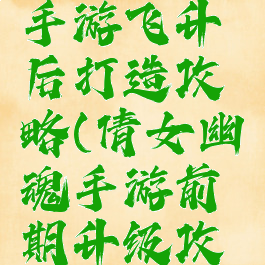 手游飞升
后打造攻
略(倩女幽
魂手游前
期升级攻